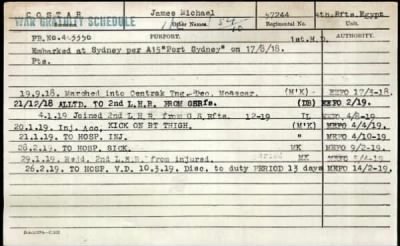 COSTAR James Michael 57244 4th.Rfts.Egypt
WAR GRATUITY SCHEDULE Regimental No.
PURPORT. 1st.M.D.
Embarked at Sydney per A15"Port Sydney" on 17/8/18.
Pte.
19.9.18. Marched into Central Tng. Dep. Moascar. (M'K) MEFO
21/12/18 ALLTD. TO 2nd L.H.R. FROM GSRfs. (DB) MEFO 2/19.
4.1.19 Joined 2nd L.H.R. from G.S.Rfts. 12-19 IL MEFO 4/8-19
20.1.19. Inj. Acc. KICK ON BT THIGH. (M'K) MEFO 4/4/19.
21.1.19. TO HOSP. INJ. " MEFO 4/10-19.
28.2.19. TO HOSP. SICK. MK MEFO 9/2-19.
29.1.19. Rejd. 2nd L.H.R. from injured. MK MEFO
26.2.19. TO HOSP. V.D. 10.3.19. Disc. to duty PERIOD 13 days MEFO 14/2-19.